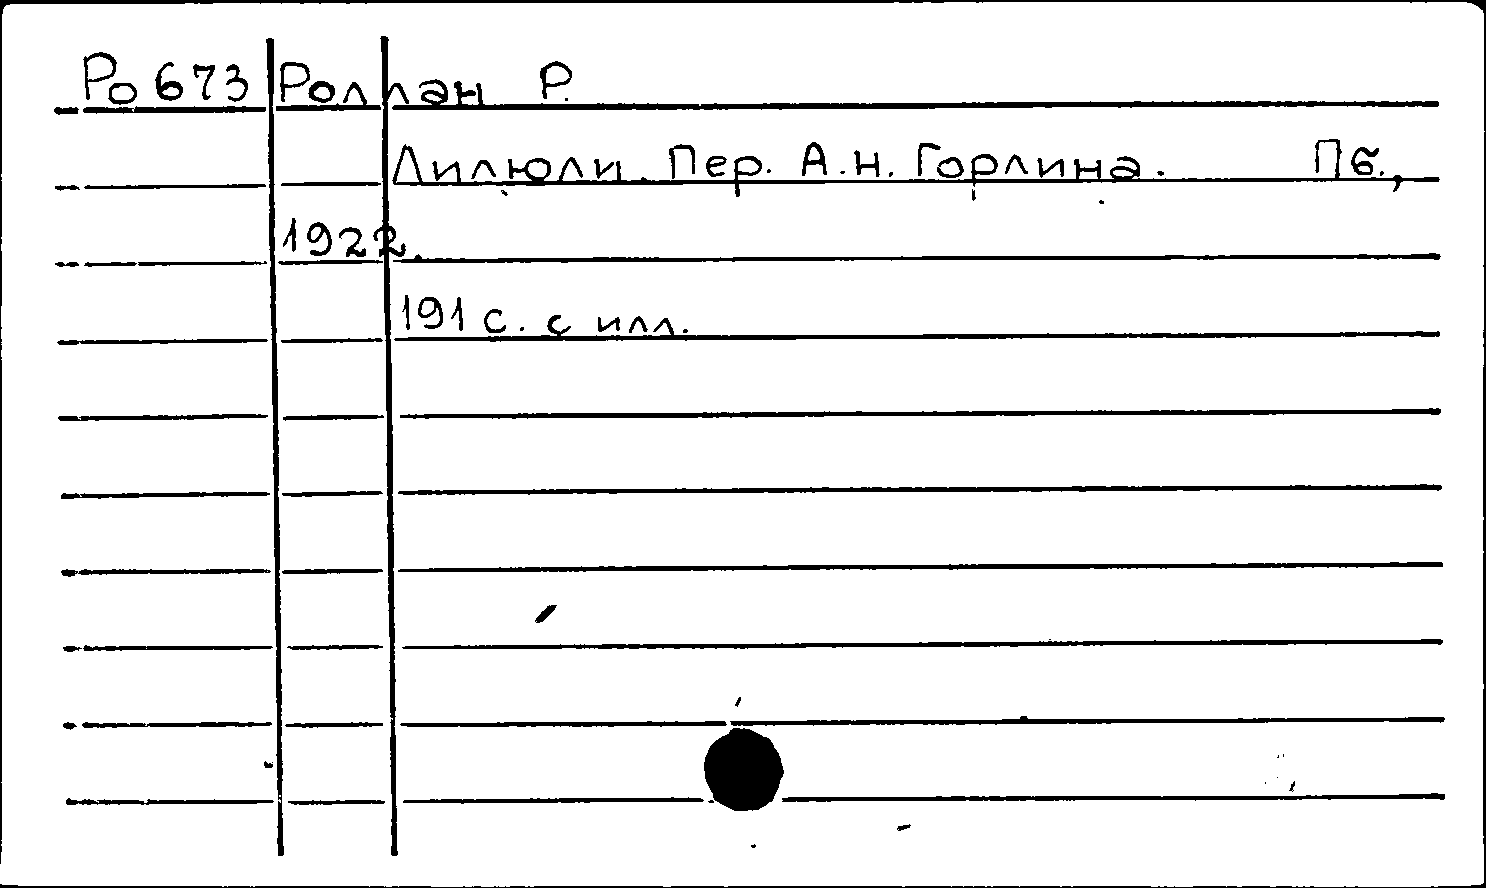 Ро 673 Роллан Р.
Лилюли. Пер. А.Н. Горлина. Пб.,
1922.
191 с. с илл.